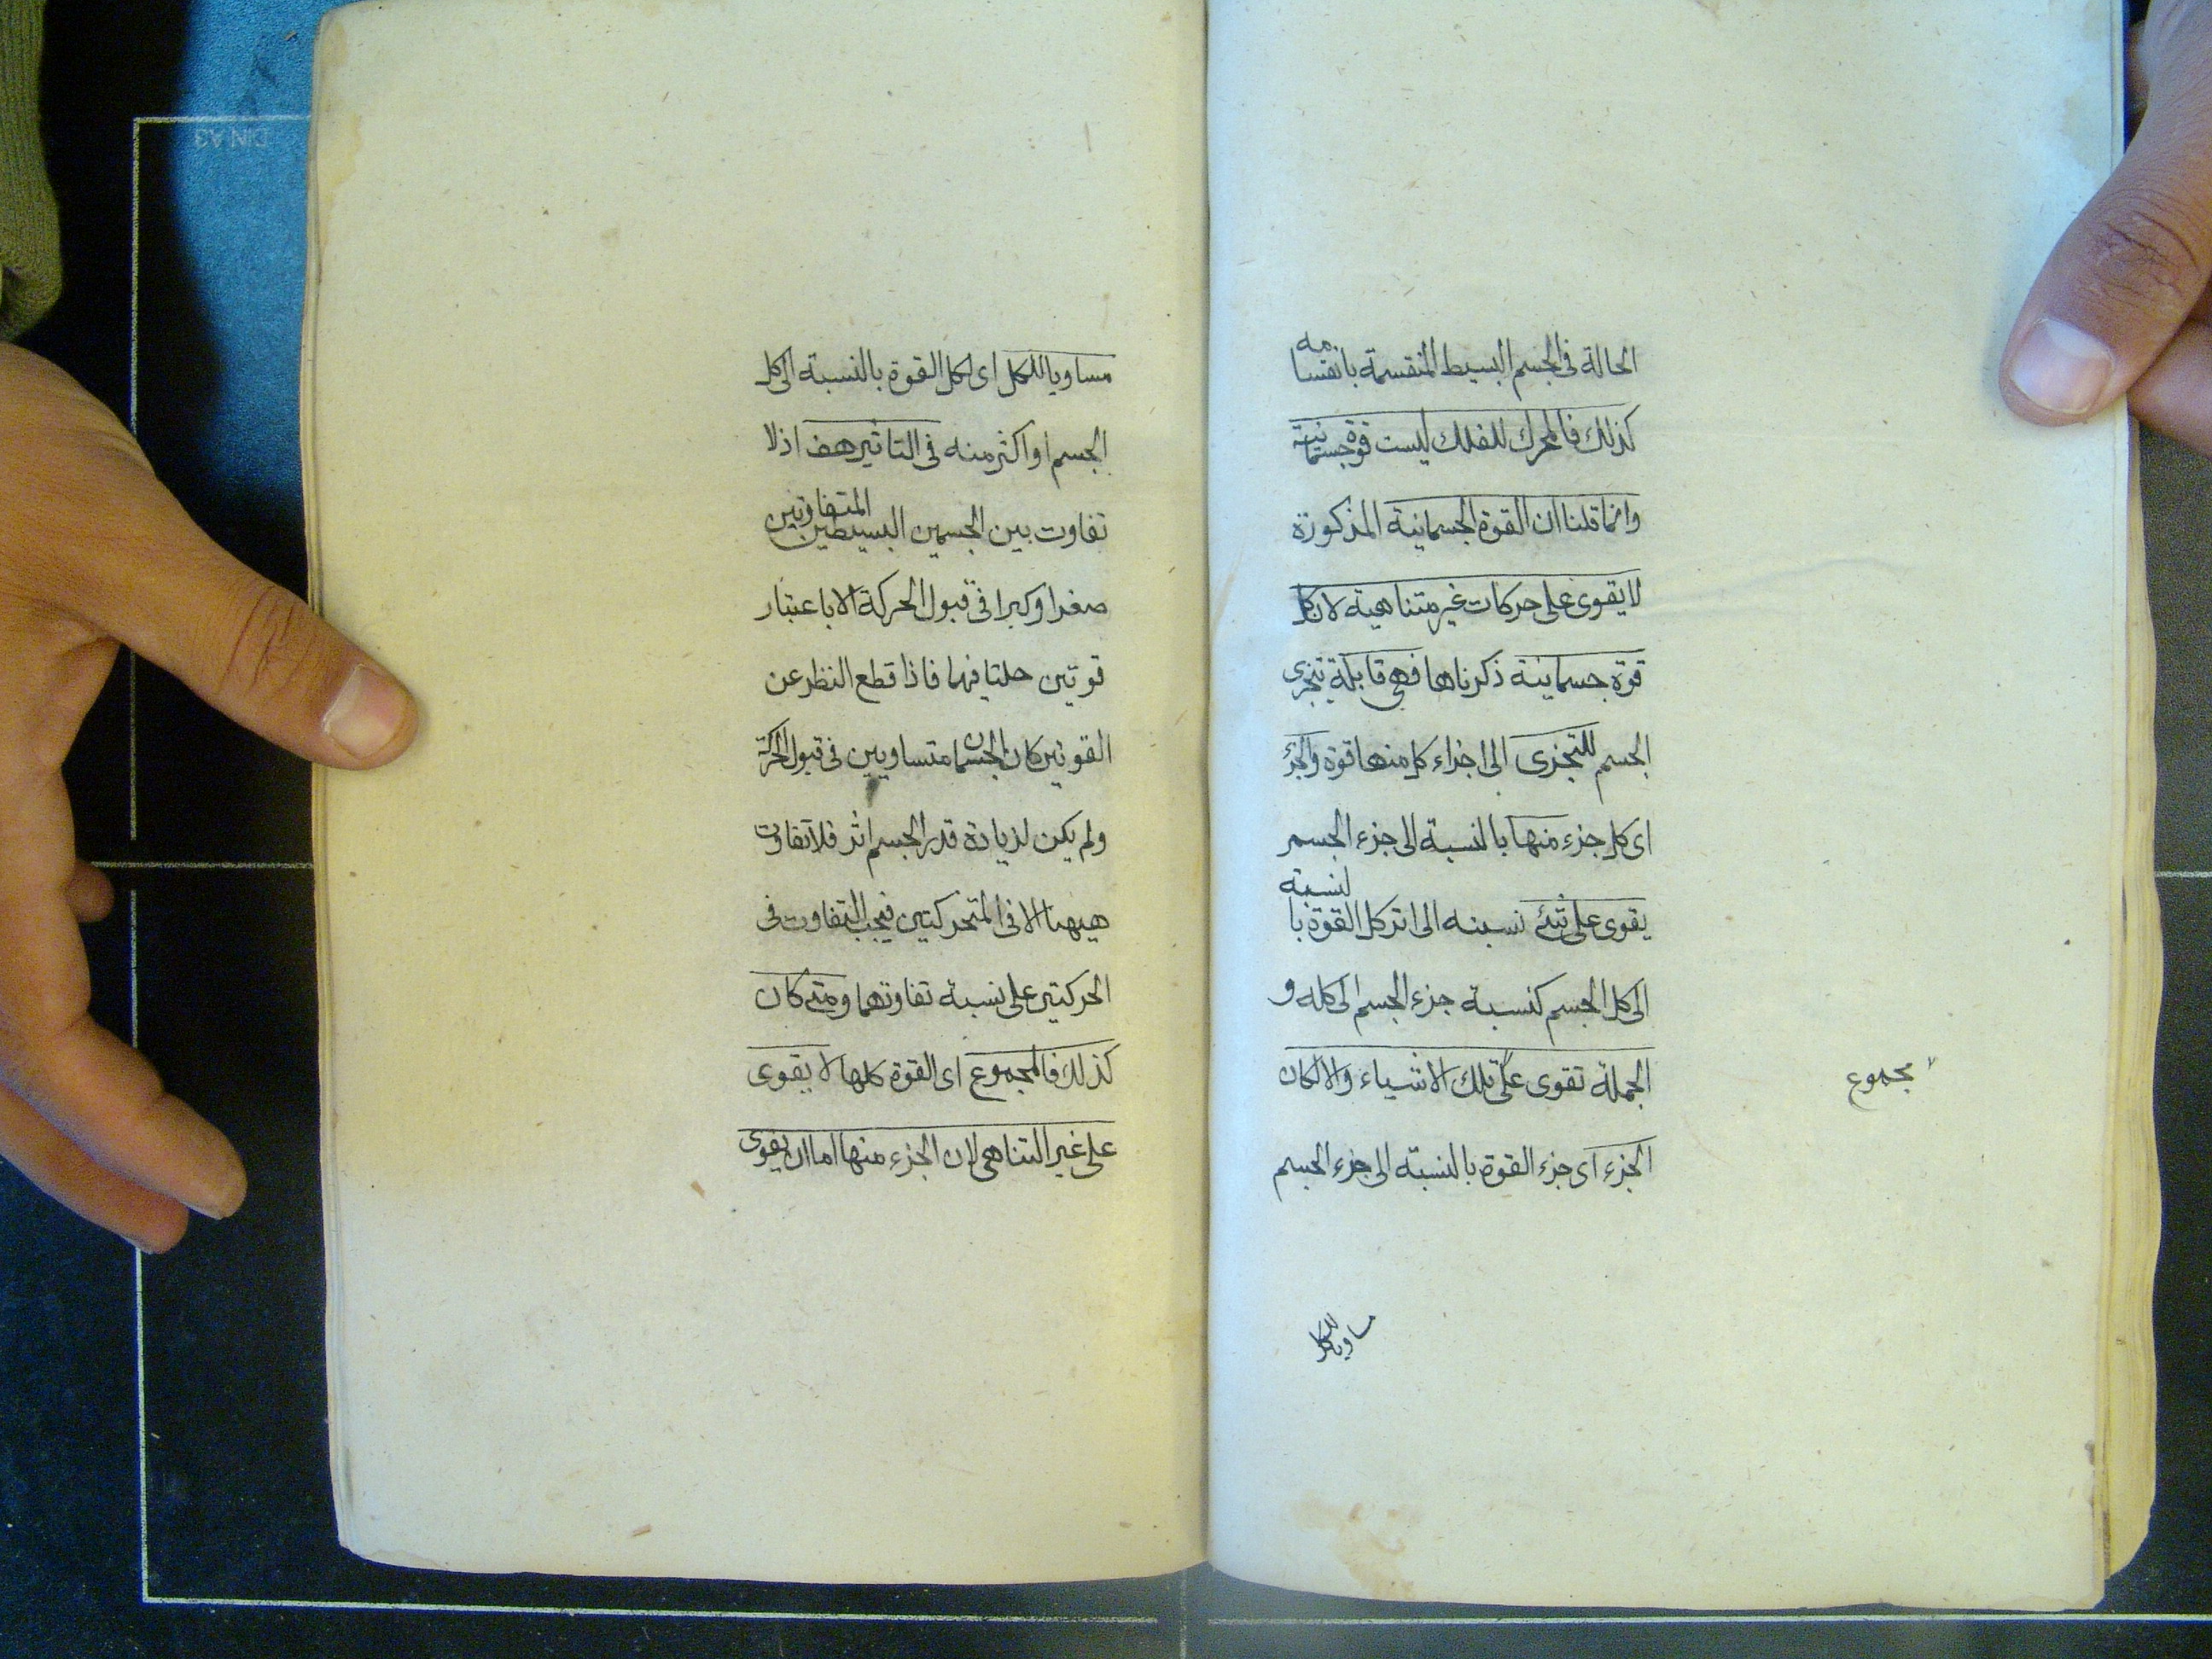 الحالة فى الجسم البسيط المنقسمة بانقسامه
كذلك فالمحرك للفلك ليست قوة جسمانية
وانما قلنا ان القوة الجسمانية المذكورة
لا يقوى على حركات غير متناهية لان كل
قوة جسمانية ذكرناها فهى قابلة تجزى
الجسم للتجزى الى اجزاء كل منها قوة والجزء
اى كل جزء منها بالنسبة الى جزء الجسم
يقوى على شئ نسبته الى اثر كل القوة بالنسبة
الى كل الجسم كنسبة جزء الجسم الى كله و
الجملة تقوى على تلك الاشياء والا لكان
مجموع
الجزء اى جزء القوة بالنسبة الى جزء الجسم
مساويا للكل
مساويا للكل اى لكل القوة بالنسبة الى كل
الجسم او اكثر منه فى التاثير هف اذ لا
تفاوت بين الجسمين البسيطين المتفاوتين
صغرا وكبرا فى قبول الحركة الا باعتبار
قوتين حلتا فيهما فاذا قطع النظر عن
القوتين كان الجسمان متساويين فى قبول الحركة
ولم يكن لزيادة قدر الجسم اثر فلا تفاوت
هيهنا الا فى المتحركتين فيجب التفاوت فى
الحركتين على نسبة تفاوتهما ومتى كان
كذلك فالمجموع اى القوة كلها لا يقوى
على غير المتناهى لان الجزء منها اما ان يقوى